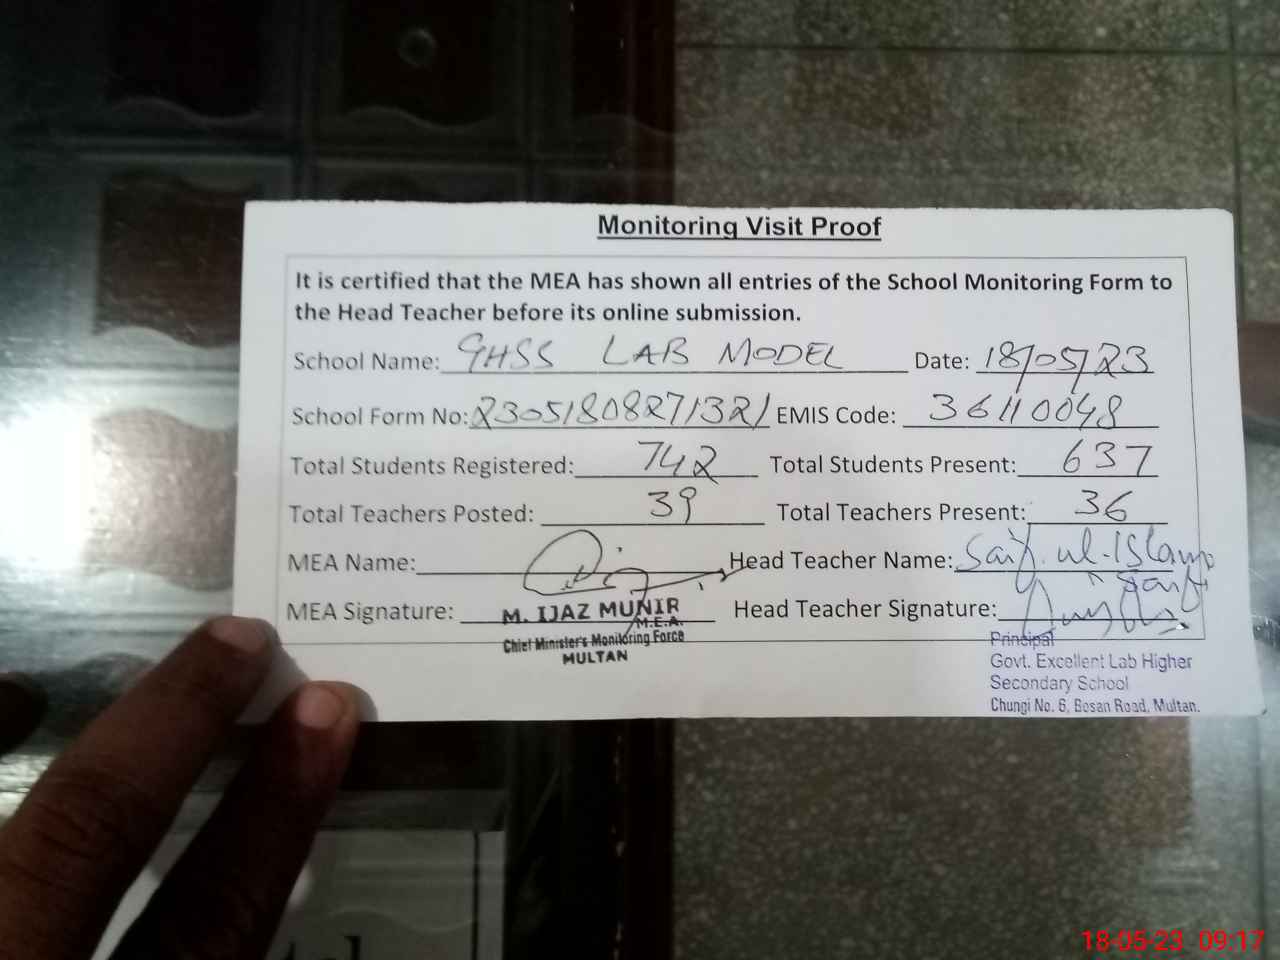 Monitoring Visit Proof
It is certified that the MEA has shown all entries of the School Monitoring Form to
the Head Teacher before its online submission.
School Name: GHSS LAB MODEL Date: 18/05/23
School Form No: 2305180827132/ EMIS Code: 36110048
Total Students Registered: 742 Total Students Present: 637
Total Teachers Posted: 39 Total Teachers Present: 36
MEA Name: Head Teacher Name: Saif-ul-Islam
MEA Signature: M. IJAZ MUNIR Head Teacher Signature:
M.E.A.
Chief Minister's Monitoring Force
MULTAN
Principal
Govt. Excellent Lab Higher
Secondary School
Chungi No. 6, Bosan Road, Multan.
18-05-23 09:17